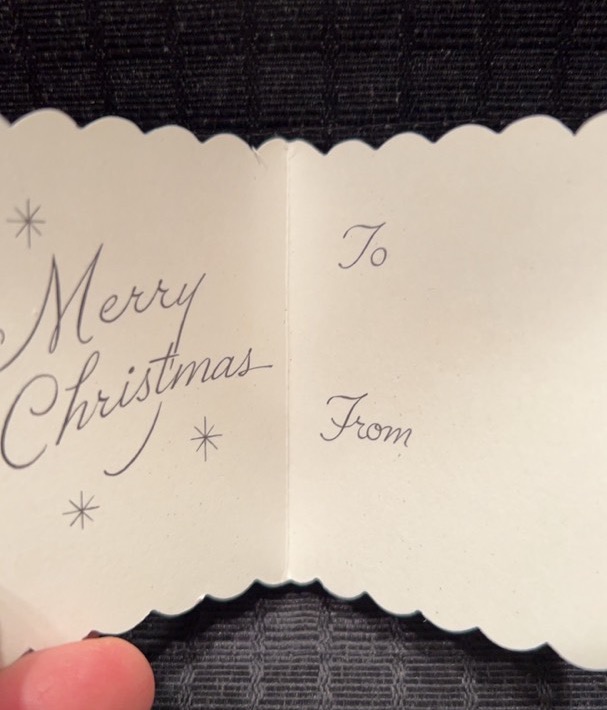 Merry
Christmas
To
From